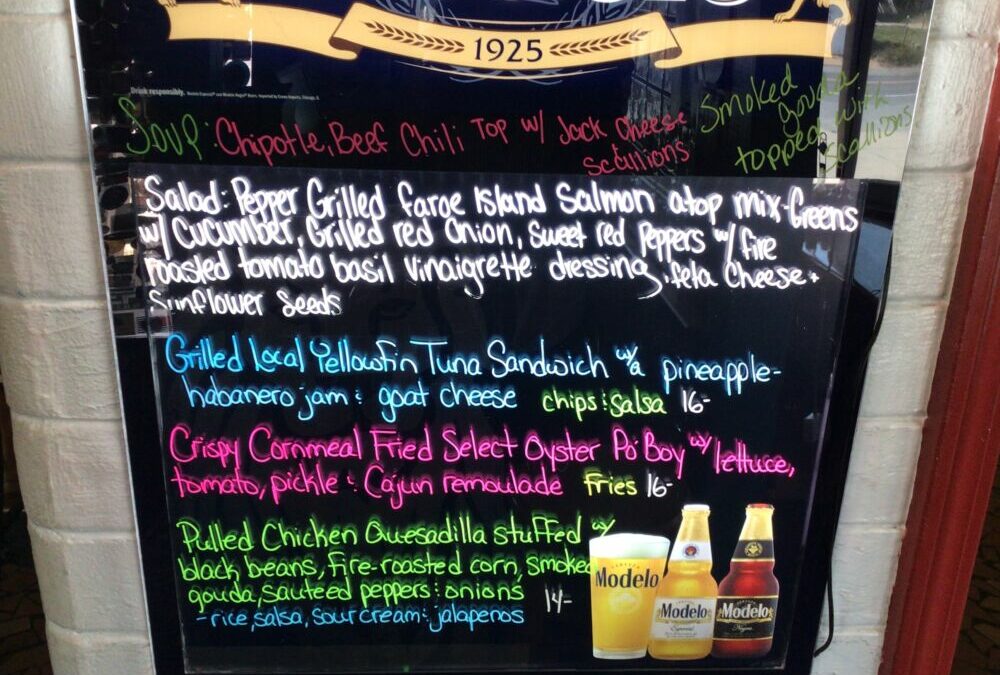 1925
Drink responsibly.
Soup: Chipotle, Beef Chili Top w/ Jack Cheese
scallions
Smoked
Gouda
topped with
scallions
Salad: Pepper Grilled Faroe Island Salmon atop mix-Greens
w/ Cucumber, Grilled red Onion, Sweet red Peppers w/ fire
roasted tomato basil Vinaigrette dressing, feta Cheese +
Sunflower Seeds
Grilled Local Yellowfin Tuna Sandwich w/a pineapple-
habanero jam & goat cheese chips & salsa 16-
Crispy Cornmeal Fried Select Oyster Po' Boy w/ lettuce,
tomato, pickle & Cajun remoulade Fries 16-
Pulled Chicken Quesadilla stuffed w/
black beans, fire-roasted corn, smoked
gouda, sauteed peppers & onions 14-
- rice, salsa, sour cream & jalapenos
Modelo
Modelo
Especial
Modelo
Negra